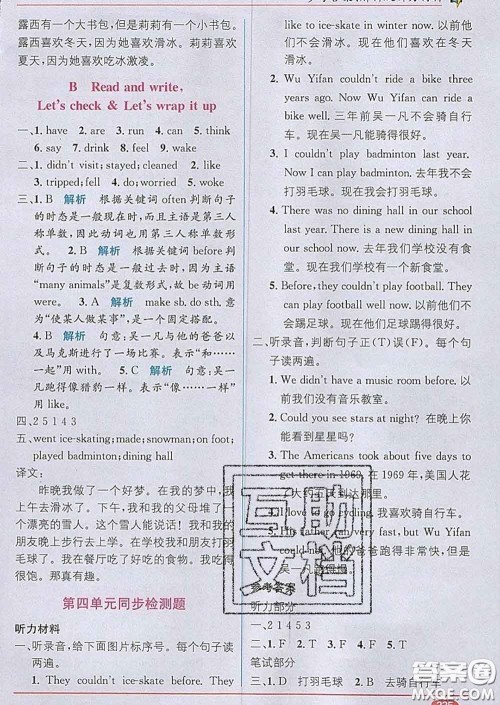 露西有一个大书包，但是莉莉有一个小书包。
露西喜欢冬天，因为她喜欢滑冰。莉莉喜欢
夏天，因为她喜欢吃冰激凌。
B Read and write,
Let's check & Let's wrap it up
一、1. have 2. are 3. run 4. can 5. think
6. say 7. drink 8. feel 9. wake
二、1. didn't visit; stayed; cleaned 2. like
3. tripped; fell 4. do; worried 5. woke
三、1. B 解析 根据关键词 often 判断句子
的时态是一般现在时，而且主语是第三人
称单数，因此动词也用第三人称单数形
式。 2. B 解析 根据关键词 before 判断
句子的时态是一般过去时；因为主语
“many animals”是复数形式，故 be 动词用
were。 3. A 解析 make sb. do sth. 意
为“使某人做某事”，是固定搭配。
4. B 解析 句意：吴一凡与他的爸爸以
及马克斯进行了一场比赛。表示“与……
一样”用 with。 5. B 解析 句意：吴一
凡跑得像猎豹一样。表示“像……一样”
用 like。
四、2 5 1 4 3
五、went ice-skating; made; snowman; on foot;
played badminton; dining hall
译文：
昨晚我做了一个好梦。在我的梦中，我
上午去滑冰了。下午，我和我的父母堆了一
个漂亮的雪人。这个雪人有大大的眼睛。我
的朋友晚上步行去了学校。我和朋友打羽
毛球了。我在餐厅吃了好吃的食物。我很高
兴。那真有趣。
第四单元同步检测题
听力材料
一、听录音，给下面图片标序号。每个句子读
两遍。
1. They couldn't ice-skate before. Now they
like to ice-skate in winter now. 以前他们
不会滑冰。现在他们喜欢在冬天滑冰。
2. Wu Yifan couldn't ride a bike three
years ago. Now Wu Yifan can ride a bike
very well. 三年前吴一凡不会骑自行
车。现在吴一凡能骑得很好。
3. I couldn't play badminton last year.
Now I can play badminton. 去年我不会
打羽毛球。现在我会打羽毛球。
4. There was no dining hall in our school
last year. Now there is a new dining hall
in our school. 去年我们学校没有食
堂。现在我们学校有一个新食堂。
5. Before they couldn't play football. They
can play football well now. 以前他们不
会踢足球。现在他们足球踢得很好。
二、听录音，判断句子正（T）误（F）。每个句
子读两遍。
1. We didn't have a music room before. 以
前我们没有音乐教室。
2. Could you see stars at night? 在晚上你
能看到星星吗？
3. The Americans took about five days to
get there in 1969. 在 1969 年，美国人花
天到达那里。
4. I love cycling. 我喜欢骑自行车。
fast, but Wu Yifan
爸爸跑得非常快，但是吴
一凡跑得很慢。
互助
文档
参考答案
听力部分
一、2 1 4 5 3
二、1. F 2. F 3. T 4. T 5. T
笔试部分
一、1. F 打羽毛球 2. D 去骑自行车
答案圈
MXQE.COM